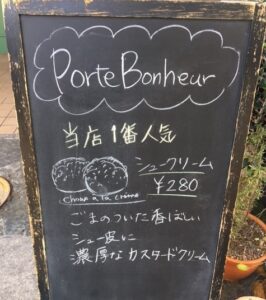 Porte Bonheur
当店1番人気
シュークリーム
¥280
Choux à la crème
ごまのついた香ばしい
シュー皮に
濃厚なカスタードクリーム